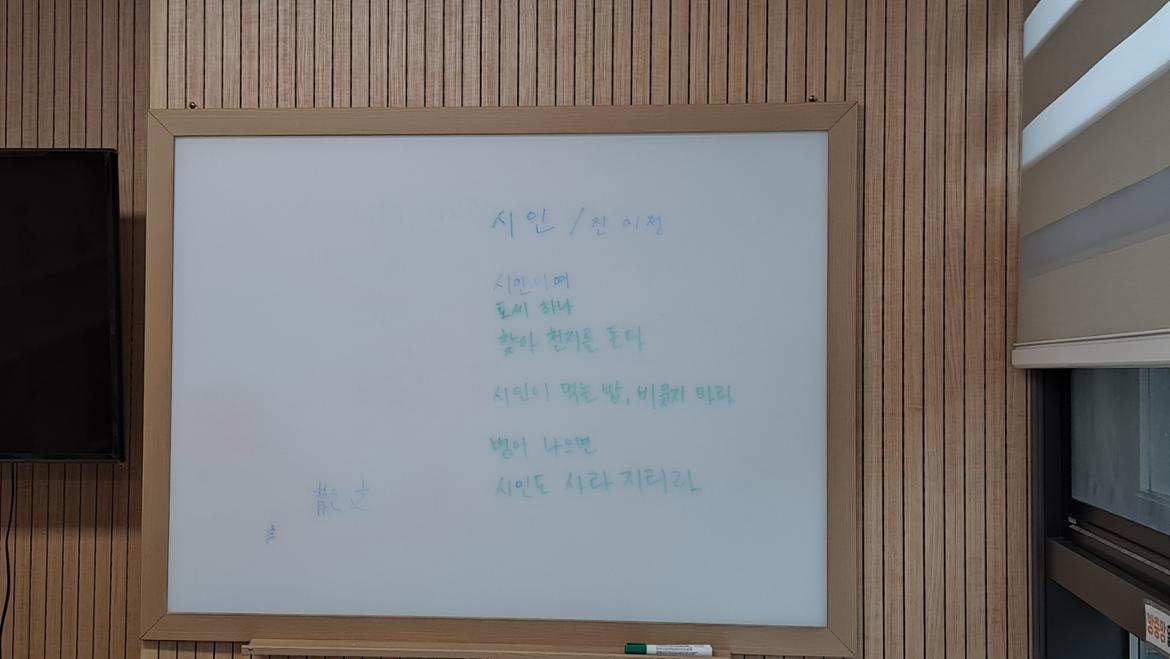 시인 / 진이정
시인이여
토씨 하나
찾아 천지를 돈다
시인이 먹는 밥, 비웃지 마라
병이 나으면
시인도 사라지리라
散文